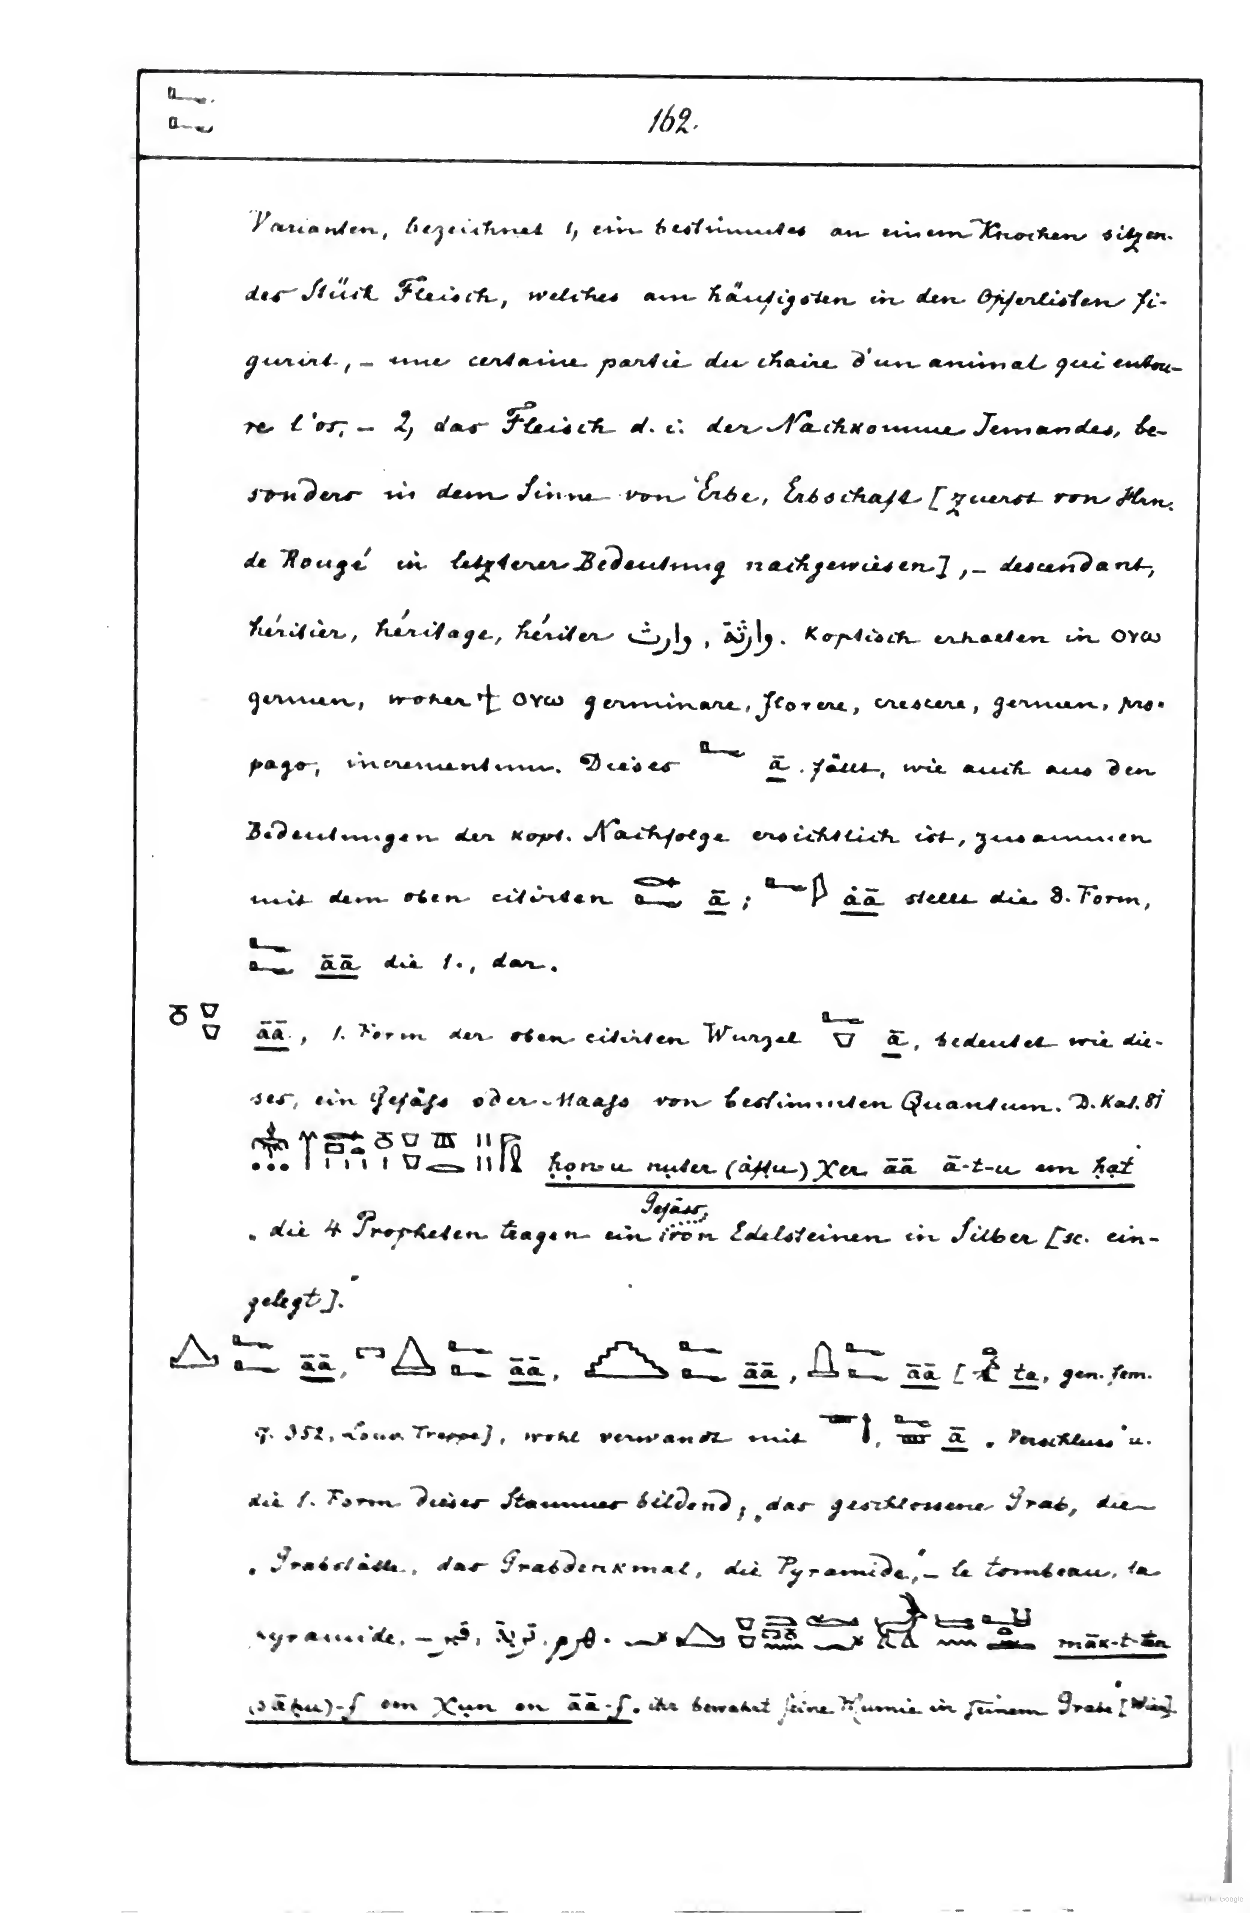 162.
Varianten, bezeichnet 1, ein bestimmtes an einem Knochen sitzen-
des Stück Fleisch, welches am häufigsten in den Opferlisten fi-
gurirt, – une certaine partie du chaire d'un animal qui entou-
re l'os, – 2, das Fleisch d. i. der Nachkomme Jemandes, be-
sonders in dem Sinne von Erbe, Erbschaft [zuerst von Hrn.
de Rougé in letzterer Bedeutung nachgewiesen], – descendant,
héritier, héritage, hériter وارث, وارثة. Koptisch erhalten in ⲟⲩⲱ
germen, woher ⲟⲩⲱ germinare, florere, crescere, germen, pro-
pago, incrementum. Dieses ā fällt, wie auch aus den
Bedeutungen der kopt. Nachfolge ersichtlich ist, zusammen
mit dem oben citirten ā; ȧā stellt die 8. Form,
āā die 1., dar.
āā, 1. Form der oben citirten Wurzel ā, bedeutet wie die-
ses, ein Gefäſs oder Maaſs von bestimmten Quantum. D. Kal. 81
ḥọn-u nuter (ȧftu) χer āā ā-t-u em ḥạt
„die 4 Propheten tragen ein Gefäss von Edelsteinen in Silber [sc. ein-
gelegt]."
āā, āā, āā, āā [ta, gen. fem.
q. 352, Louv. Treppe], wohl verwandt mit ā „Verschluss" u.
die 1. Form dieses Stammes bildend, „das geschlossene Grab, die
„Grabstätte, das Grabdenkmal, die Pyramide", – le tombeau, la
pyramide, – māk-t-ten
(sāḥu)-f em χun en āā-f „ihr bewahrt seine Mumie in seinem Grabe" [Wien]